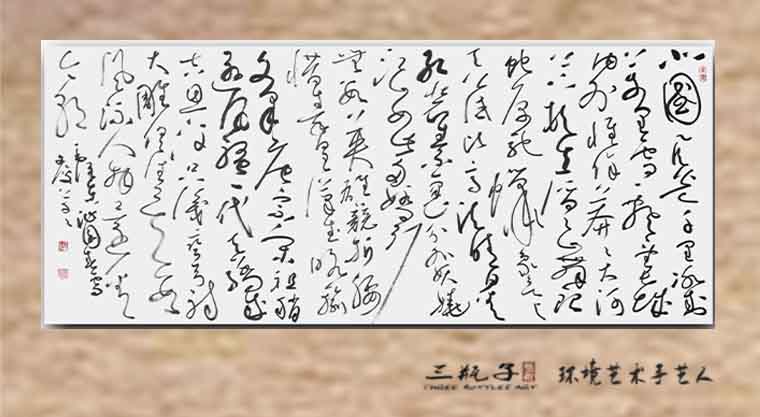 北國風光千里冰封
万里雪飘望长城
内外惟余莽莽大河
上下顿失滔滔山舞银
蛇原驰蜡象欲与
天公试比高须晴日看
红装素裹分外妖娆
江山如此多娇引
無数英雄竞折腰
惜秦皇汉武略输
文采唐宗宋祖稍
逊风骚一代天骄成
吉思汗只识弯弓射
大雕俱往矣数
风流人物还看
今朝
毛泽东沁园春雪
三瓶子
THREE BOTTLES ART
环境艺术手艺人